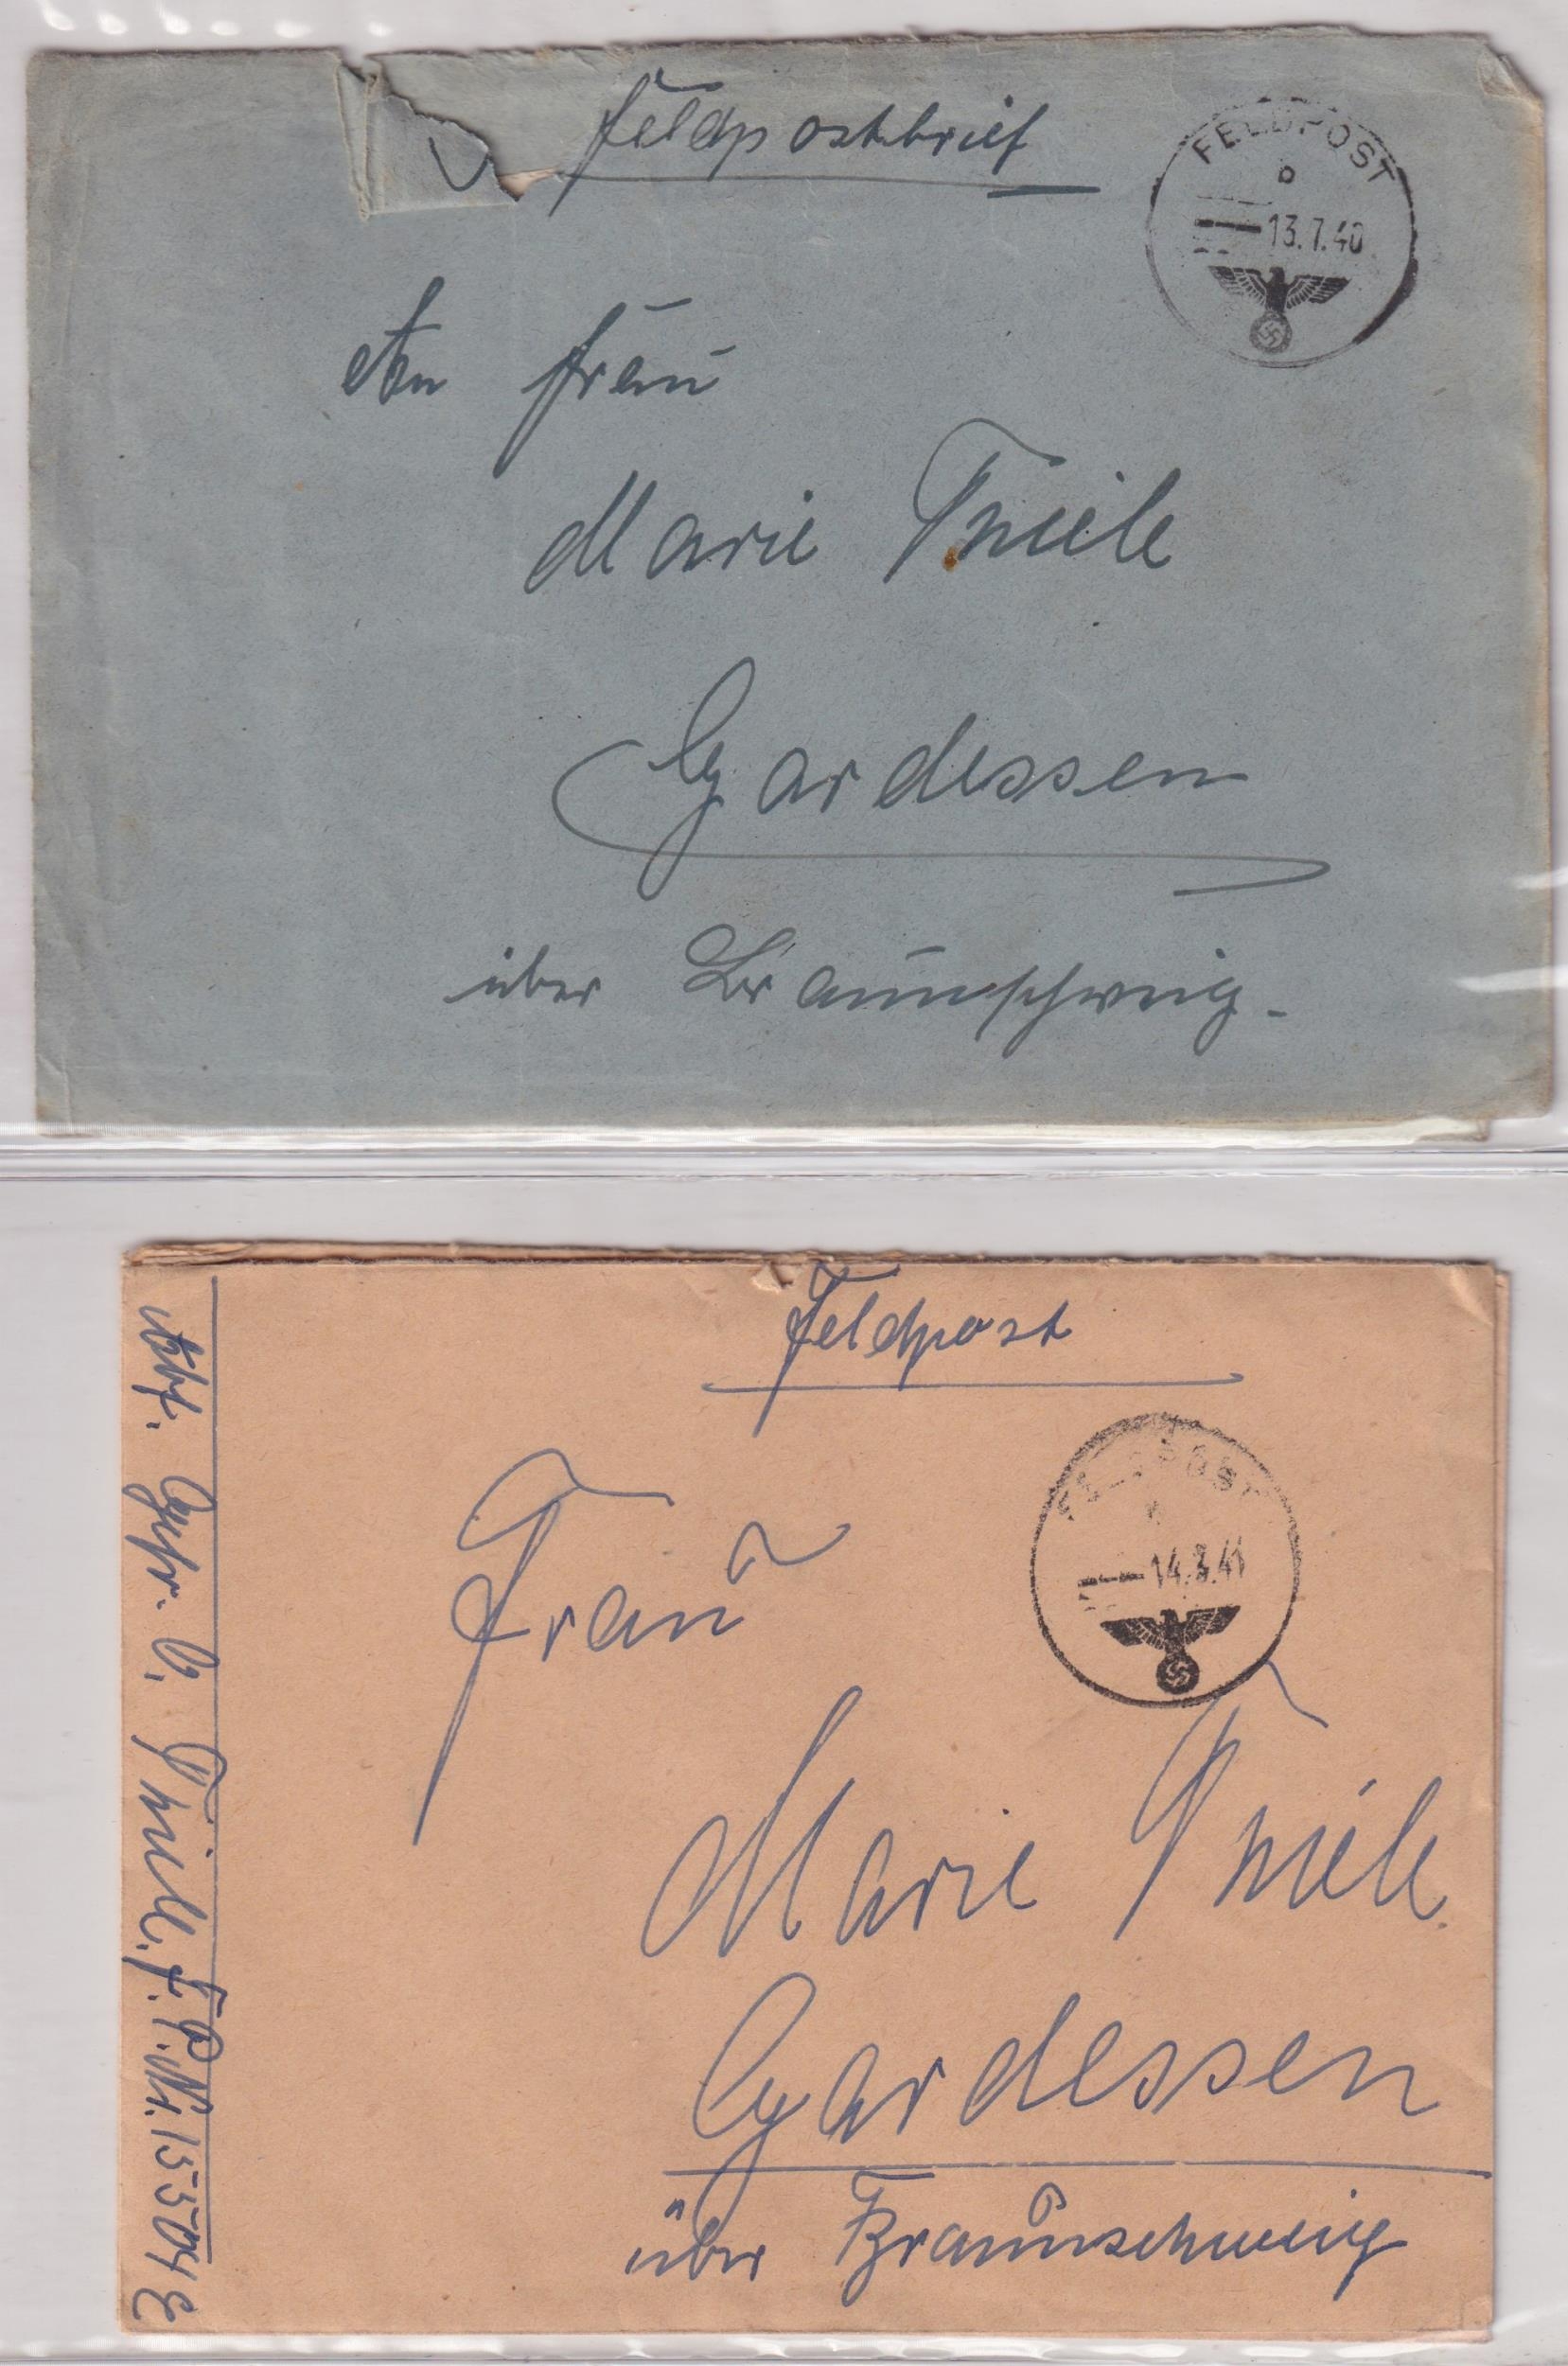 Feldpostbrief
FELDPOST
b
13.7.40
An Frau
Marie Thiele
Gardessen
über Braunschweig.
Feldpost
14.3.41
Frau
Marie Thiele
Gardessen
über Braunschweig
Abs. Gefr. O. Thiele. F.P.Nr. 15504 E